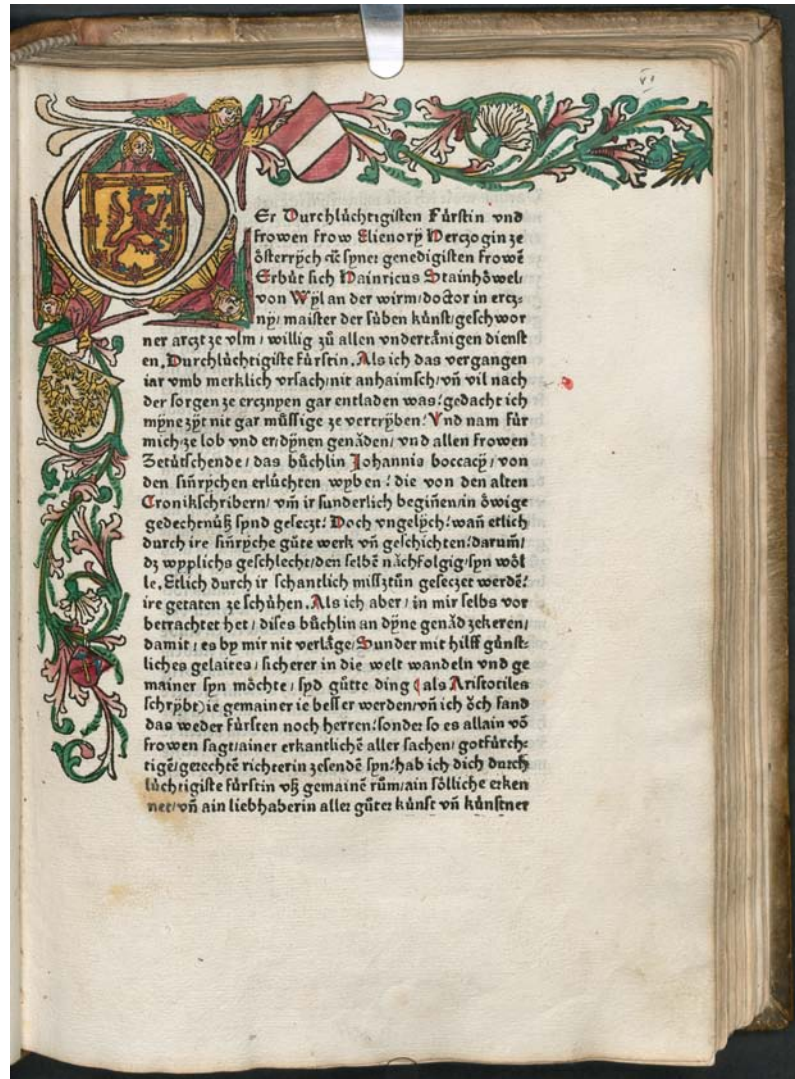 vi
Er Durchlúchtigisten Fúrstin vnd
frowen frow Elienorÿ Herczogin ze
ŏsterrÿch ꝛc̃ syner genedigisten frowẽ
Erbút sich Hainricus Stainhŏwel
von Wÿl an der wirm / doctor in ercz⸗
nÿ / maister der súben kúnst / geschwor
ner arczt ze vlm / willig zů allen vndertånigen dienst
en. Durchlúchtigiste fúrstin. Als ich das vergangen
iar vmb merklich vrsach / nit anhaimsch / vñ vil nach
der sorgen ze ercznyen gar entladen was : gedacht ich
mÿne zÿt nit gar mússige ze vertrÿben : Vnd nam fúr
mich / ze lob vnd er / dÿnen genåden / vnd allen frowen
Zetútschende / das bůchlin Johannis boccacÿ / von
den siñrÿchen erlúchten wyben : die von den alten
Cronikschribern / vm̃ ir sunderlich begiñen / in ŏwige
gedechtnúß synd geseczt : Doch vngelÿch : wañ etlich
durch ire siñrÿche gúte werk vñ geschichten : darum̃ /
dz wyplichs geschlecht / den selbẽ nåchfolgig / syn wŏl
le. Etlich durch ir schantlich missztůn geseczet werdẽ :
ire getaten ze schúhen. Als ich aber / in mir selbs vor
betrachtet het / dises bůchlin an dÿne genåd zekeren /
damit / es by mir nit verlåge / Sunder mit hilff gúnst⸗
liches gelaites / sicherer in die welt wandeln vnd ge
mainer syn mŏchte / syd gútte ding (als Aristotiles
schrÿbt) ie gemainer ie besser werden / vñ ich ŏch fand
das weder fúrsten noch herren : sonder so es allain võ
frowen sagt / ainer erkantlichẽ aller sachen / gotfúrch⸗
tigẽ / gerechtẽ richterin zesendẽ syn : hab ich dich durch
lúchtigiste fúrstin vß gemainẽ rům / ain sŏlliche erken
net / vñ ain liebhaberin aller gůter kúnst vñ kúnstner